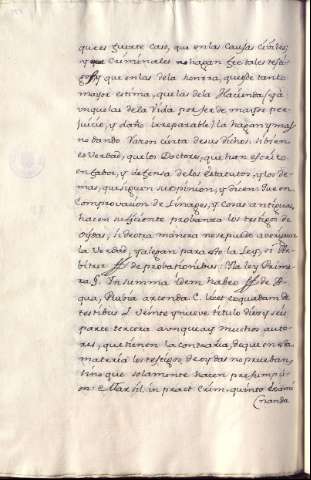 que es fuerte caso, que en las causas civiles,
y que Criminales no hagan fee tales testi
gos, y que en las de la honrra, que es de tanto
mayor estima, que las de la Hacienda, y à
un que las de la Vida por ser de mayor per
juicio, y daño irreparable) la hagan, y mas
no dando razon cierta de sus dichos: si bien
es Verdad, que los Doctores, que han escrito
en fabor, y defensa de los estatutos, y los de
mas, que siguen su opinion, y dicen, que en
Comprovacion de Linages, y Cosas antiguas,
hacen suficiente probanza los testigos de
oydas, si de otra manera no se pudo averiguar
la Verdad, y alegan para esto la Ley, si
arbiter ff de probationibus: Y la ley Prime
ra §. Insumma idem habeo ff de A
qua, Pluvia arcenda. C. licet ex quadam de
testibus L. Veinte y nueve titulo diez y seis
parte tercera aunque ay muchos auto
res, que tienen la contraria, de que en esta
materia los testigos de oydas no prueban,
sino que solamente hacen presumpci
on: Marsil. in pract. Crim. quinto exami
nanda